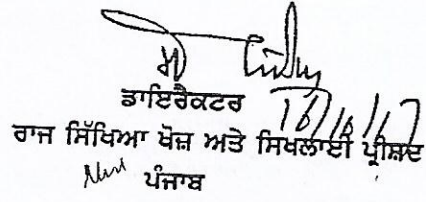 ਡਾਇਰੈਕਟਰ 16/10/17
ਰਾਜ ਸਿੱਖਿਆ ਖੋਜ਼ ਅਤੇ ਸਿਖਲਾਈ ਪ੍ਰੀਸ਼ਦ
ਪੰਜਾਬ